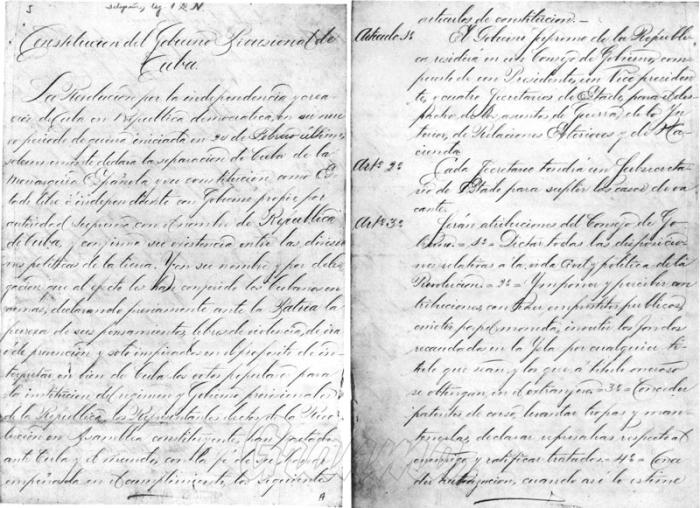 Constitucion del Gobierno Provisional de
Cuba.
La Revolucion por la independencia y crea-
cion de Cuba en República democrática, en su nue
vo periodo de guerra iniciada en 24 de Febrero último,
solemnemente declara la separación de Cuba de la
Monarquia Española y su constitucion como Es-
tado libre é independiente con Gobierno propio por
autoridad suprema con el nombre de República
de Cuba, y confirma su existencia entre las divisio
nes politicas de la tierra. Y en su nombre y por dele-
gacion que al efecto les han conferido los cubanos en
armas, declarando previamente ante la Patria la
pureza de sus pensamientos, libres de violencia, de ira
ó de prevencion y solo inspirados en el propósito de in-
terpretar en bien de Cuba los votos populares para
la institucion del régimen y Gobierno provisionales
de la República, los Representantes electos de la Revo-
lucion en Asamblea constituyente, han pactado
ante Cuba y el mundo, con la fé de su honor
empeñada en el cumplimiento, los siguientes
articulos de constitucion.—
Articulo 1º El Gobierno supremo de la Republi
ca residirá en un Consejo de Gobierno, com
puesto de un Presidente, un Vice presiden
te, y cuatro Secretarios de Estado, para el des
pacho de los asuntos de Guerra, de lo In-
terior, de Relaciones Exteriores y de Ha-
cienda.
Artº 2º Cada Secretario tendrá un Subsecreta-
rio de Estado para suplir los casos de va
cante.
Artº 3º Serán atribuciones del Consejo de Go-
bierno = 1º = Dictar todas las disposicio
nes relativas á la vida civil y politica de la
Revolucion = 2º = Ymponer y percibir con
tribuciones, contraer emprestitos publicos,
emitir papel moneda, invertir los fondos
recaudados en la Ysla por cualquier ti-
tulo que sean y los que á titulo oneroso
se obtengan en el extrangero = 3º = Conceder
patentes de corso, levantar tropas y man-
tenerlas, declarar represalias respecto al
enemigo y ratificar tratados = 4º = Conce
der autorizacion, cuando asi lo estime